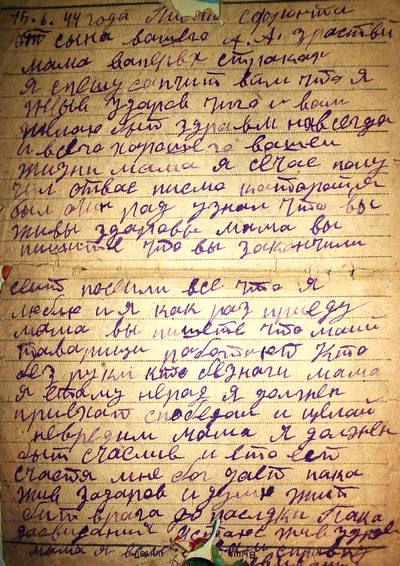 15.6.44 года Писмо сфронта
от сына вашего А.А. зраствй
мама вапервх страках
я спешу сапчит вам что я
жыв здаров чиго и вам
жилаю быт здравм навсегда
и всего харошего вашей
жизни мама я сечас палу-
чил отвас писмо катарой я
был очн рад узнал что вы
живы здаровы мама вы
пишите что вы закончили
сеит посеили все что я
люблю и я как раз приеду
мама вы пишете что маии
таварищи работают кто
без руки кто безнаги мама
я етаму нерад я должен
приехат спобедой и целай
невредим мама я должен
быт счаслив и ето ест
счастя мне бог даст пака
жив здаров и думю жит
бит врага до паследки Пака
дасвидания астаюс жив здаров
мама я вам